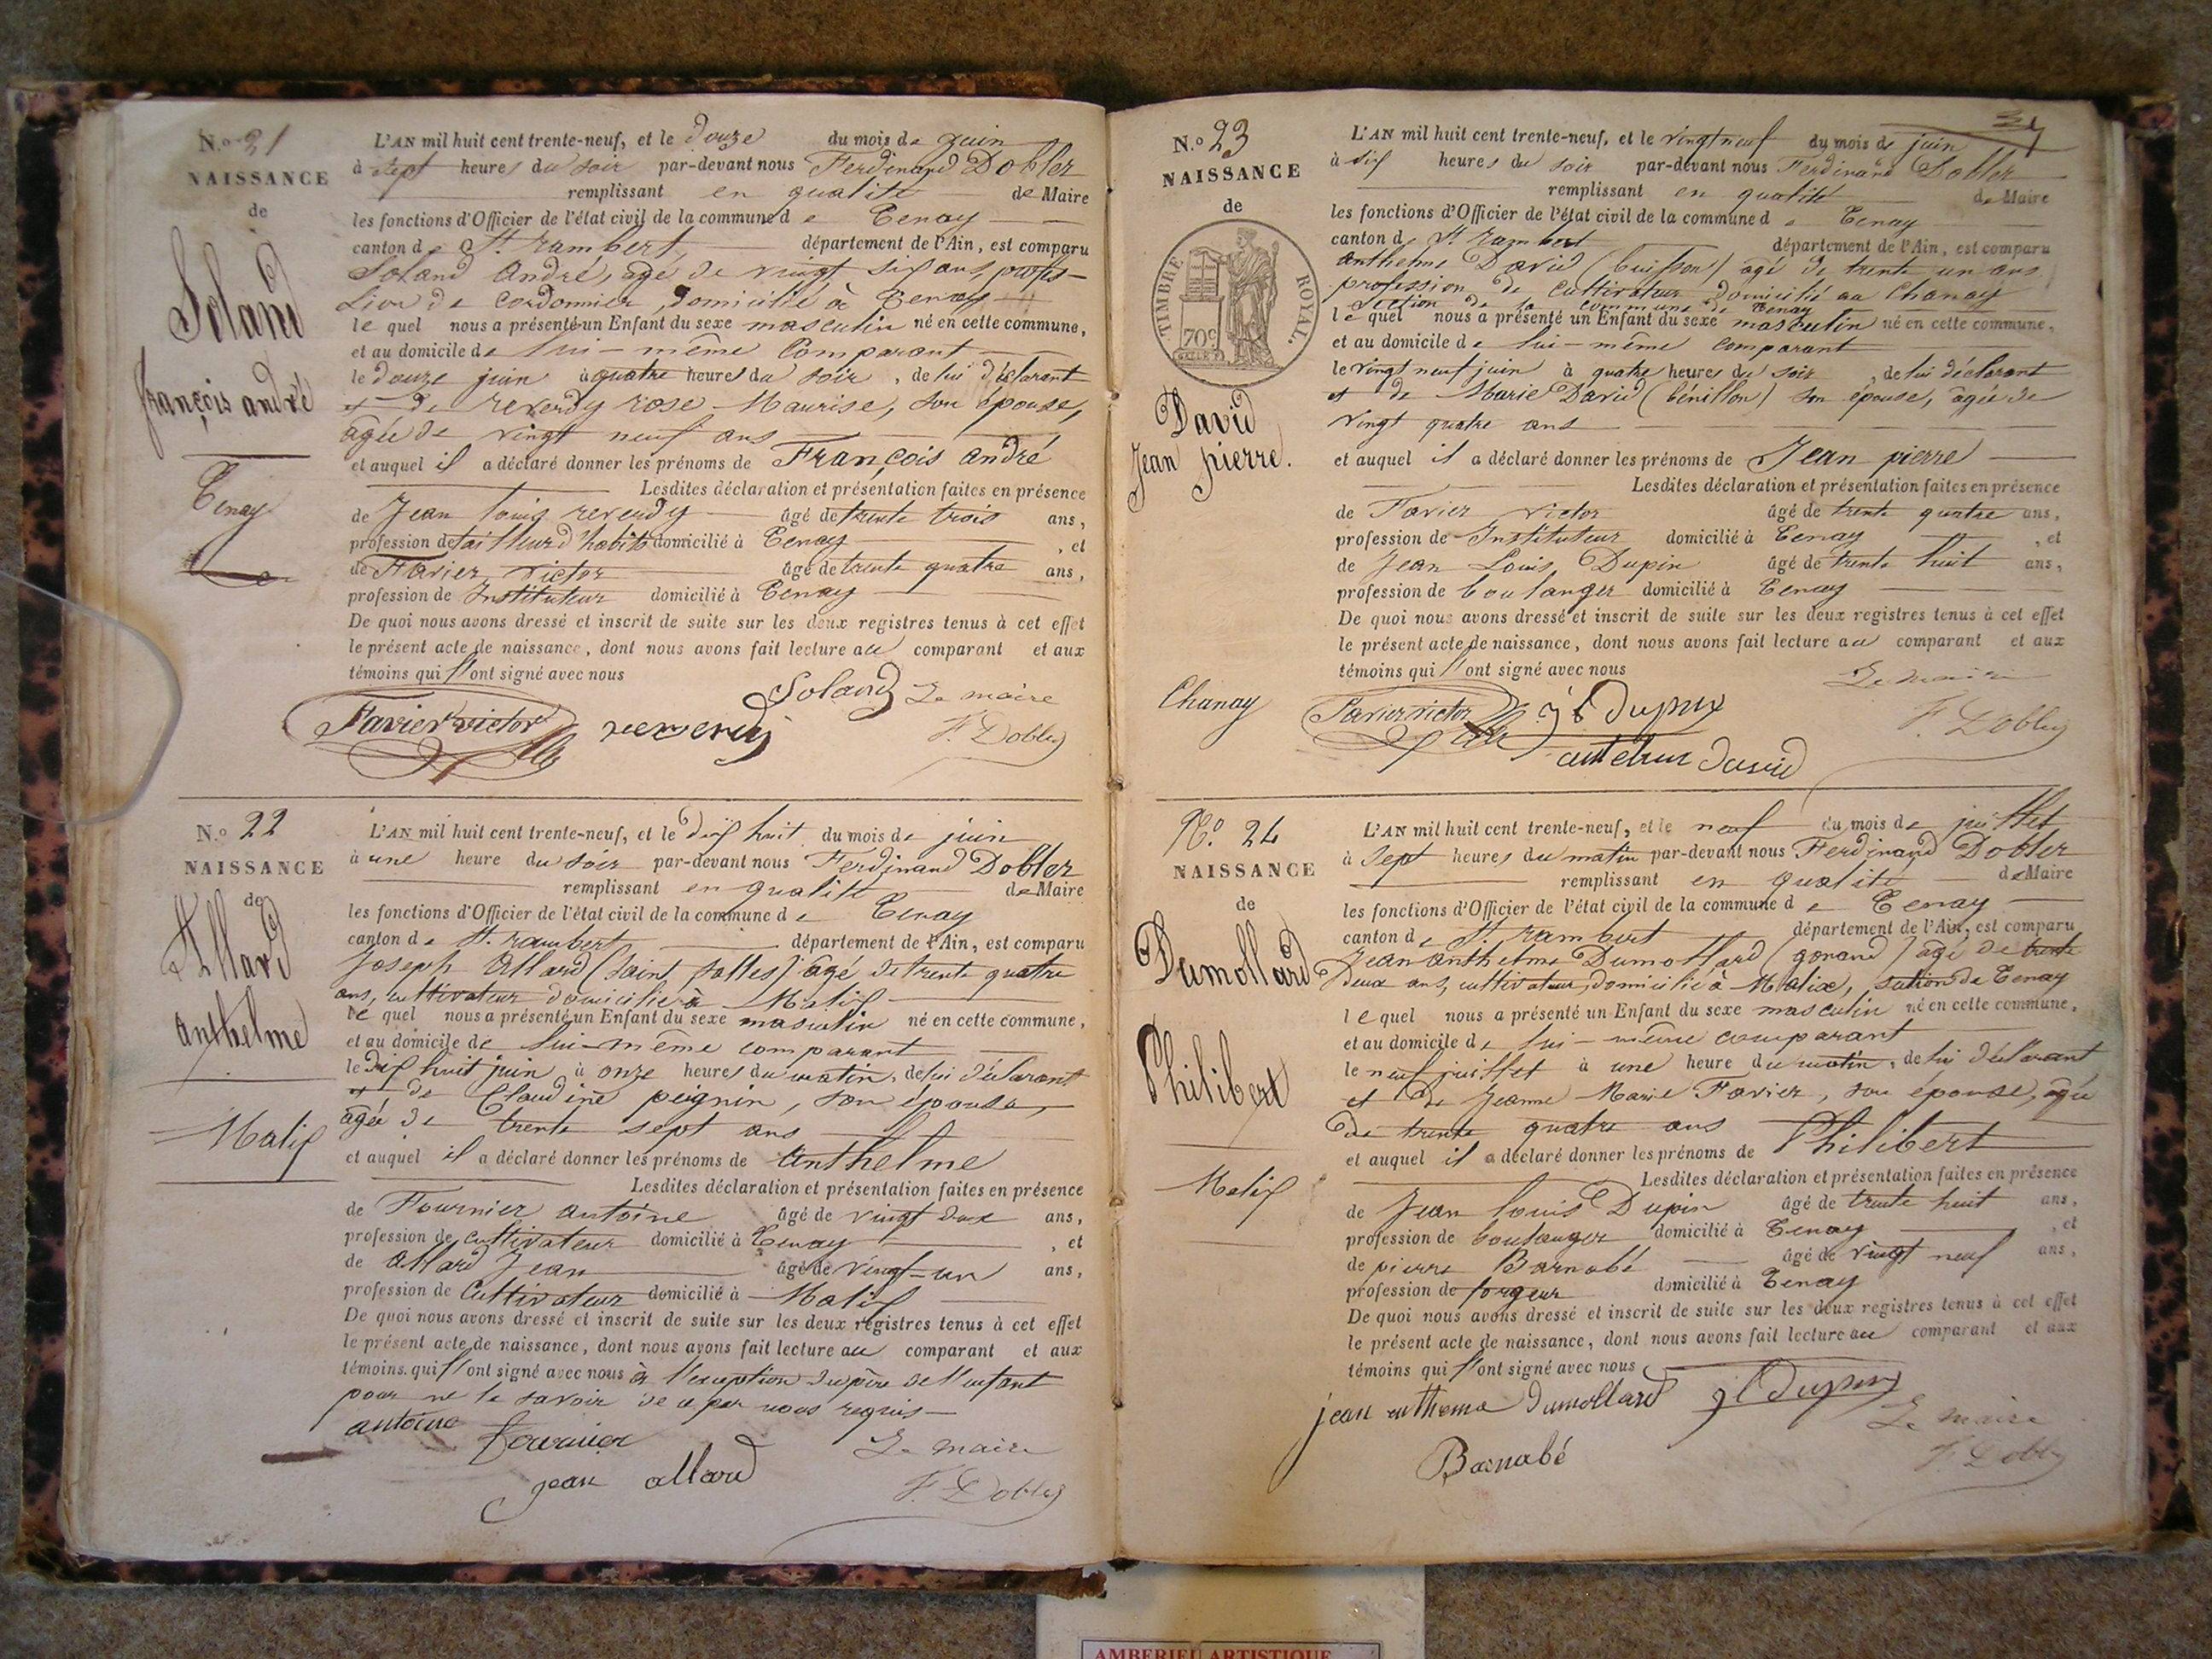 N.o 21
NAISSANCE
de
Soland
françois andré
Tenay
L'AN mil huit cent trente-neuf, et le douze du mois de juin
à sept heures du soir par-devant nous Ferdinand Dobler
remplissant en qualité de Maire
les fonctions d'Officier de l'état civil de la commune de Tenay
canton de St. rambert, département de l'Ain, est comparu
Soland André, âgé de vingt six ans, profes-
sion de cordonnier, domicilié à Tenay
le quel nous a présenté un Enfant du sexe masculin né en cette commune,
et au domicile de lui-même Comparant
le douze juin à quatre heures du soir, de lui déclarant
et de reverdy rose Maurise, son épouse,
âgée de vingt neuf ans
et auquel il a déclaré donner les prénoms de François andré
Lesdites déclaration et présentation faites en présence
de Jean louis reverdy âgé de trente trois ans,
profession de tailleur d'habits domicilié à Tenay, et
de Favier victor âgé de trente quatre ans,
profession de Instituteur domicilié à Tenay
De quoi nous avons dressé et inscrit de suite sur les deux registres tenus à cet effet
le présent acte de naissance, dont nous avons fait lecture au comparant et aux
témoins qui l'ont signé avec nous
Soland Le maire
Favier victor reverdy F. Dobler
N.o 22
NAISSANCE
de
Allard
anthelme
Malix
L'AN mil huit cent trente-neuf, et le dix huit du mois de juin
à une heure du soir par-devant nous Ferdinand Dobler
remplissant en qualité de Maire
les fonctions d'Officier de l'état civil de la commune de Tenay
canton de St. rambert, département de l'Ain, est comparu
Joseph Allard (Saint Jolles) âgé de trente quatre
ans, cultivateur domicilié à Malix
le quel nous a présenté un Enfant du sexe masculin né en cette commune,
et au domicile de lui-même comparant
le dix huit juin à onze heures du matin, de lui déclarant
et de Claudine peignin, son épouse,
âgée de trente sept ans
et auquel il a déclaré donner les prénoms de anthelme
Lesdites déclaration et présentation faites en présence
de Fournier antoine âgé de vingt deux ans,
profession de cultivateur domicilié à Tenay, et
de Allard Jean âgé de vingt-un ans,
profession de Cultivateur domicilié à Malix
De quoi nous avons dressé et inscrit de suite sur les deux registres tenus à cet effet
le présent acte de naissance, dont nous avons fait lecture au comparant et aux
témoins qui l'ont signé avec nous à l'exception du père de l'enfant
pour ne le savoir de ce par nous requis
antoine fournier Le maire
jean allard F. Dobler
34
N.o 23
NAISSANCE
de
TIMBRE ROYAL.
70c
David
Jean pierre.
Chanay
L'AN mil huit cent trente-neuf, et le vingt neuf du mois de juin
à six heures du soir par-devant nous Ferdinand Dobler
remplissant en qualité de Maire
les fonctions d'Officier de l'état civil de la commune de Tenay
canton de St. rambert département de l'Ain, est comparu
anthelme David (buisson) âgé de trente un ans
profession de cultivateur domicilié au Chanay
Section de la commune de Tenay
le quel nous a présenté un Enfant du sexe masculin né en cette commune,
et au domicile de lui-même comparant
le vingt neuf juin à quatre heures du soir, de lui déclarant
et de Marie David (bénillon) son épouse, âgée de
vingt quatre ans
et auquel il a déclaré donner les prénoms de Jean pierre
Lesdites déclaration et présentation faites en présence
de Favier victor âgé de trente quatre ans,
profession de Instituteur domicilié à Tenay, et
de Jean Louis Dupin âgé de trente huit ans,
profession de boulanger domicilié à Tenay
De quoi nous avons dressé et inscrit de suite sur les deux registres tenus à cet effet
le présent acte de naissance, dont nous avons fait lecture au comparant et aux
témoins qui l'ont signé avec nous
Le maire
Favier victor F. Dobler
David
N.o 24
NAISSANCE
de
Dumollard
Philibert
Malix
L'AN mil huit cent trente-neuf, et le neuf du mois de juillet
à Sept heures du matin par-devant nous Ferdinand Dobler
remplissant en qualité de Maire
les fonctions d'Officier de l'état civil de la commune de Tenay
canton de St. rambert département de l'Ain, est comparu
Jean anthelme Dumollard (gonand) âgé de trente
deux ans, cultivateur, domicilié à Malix, section de Tenay
le quel nous a présenté un Enfant du sexe masculin né en cette commune,
et au domicile de lui-même comparant
le neuf juillet à une heure du matin, de lui déclarant
et de Jeanne Marie Favier, son épouse, âgée
de trente quatre ans
et auquel il a déclaré donner les prénoms de Philibert
Lesdites déclaration et présentation faites en présence
de Jean louis Dupin âgé de trente huit ans,
profession de boulanger domicilié à Tenay, et
de pierre Barnabé âgé de vingt neuf ans,
profession de forgeur domicilié à Tenay
De quoi nous avons dressé et inscrit de suite sur les deux registres tenus à cet effet
le présent acte de naissance, dont nous avons fait lecture au comparant et aux
témoins qui l'ont signé avec nous
jean anthelme dumollard
Le maire
Barnabé F. Dobler
AMBERIEU ARTISTIQUE